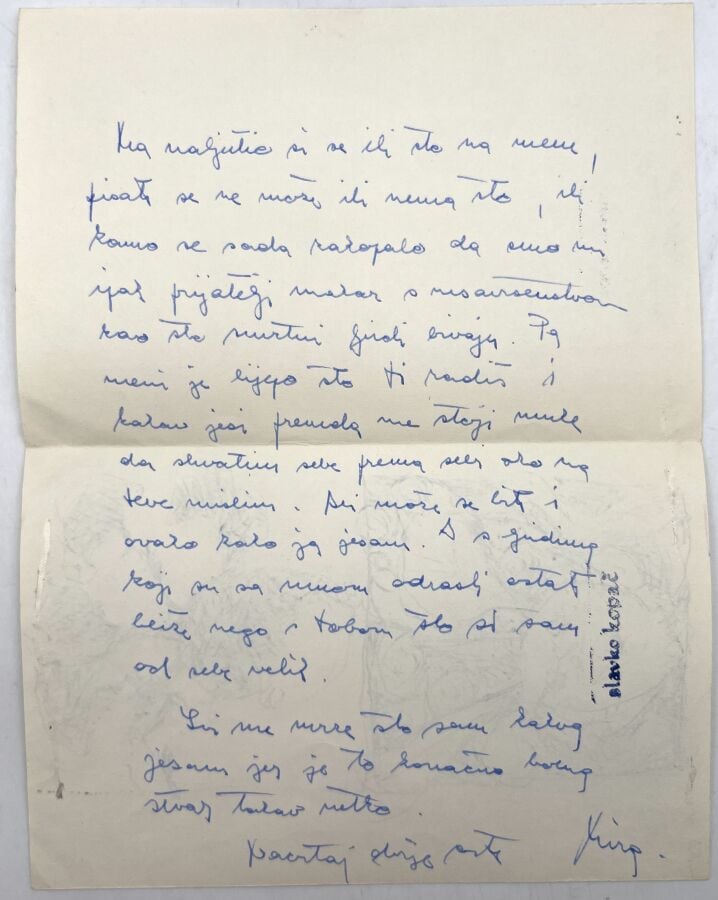 Ma naljutio si se ili što na mene,
pisati se ne može ili nema što, ili
kamo se sada zakopalo da smo mi
ipak prijatelji makar s nesavršenstvom
kao što smrtni ljudi bivaju. Pa
meni je lijepo što ti radiš i
kakav jesi premda me stoji muke
da shvatim sebe prema sebi ako na
tebe mislim. Ali može se biti i
ovako kako ja jesam. A s ljudima
koji su sa mnom odrasli ostati
bliže nego s tobom što si sam
od sebe velik.
Svi me mrze što sam kakav
jesam jer je to konačno
stvar takav netko.
Nacrtaj dvije
slavko kopač